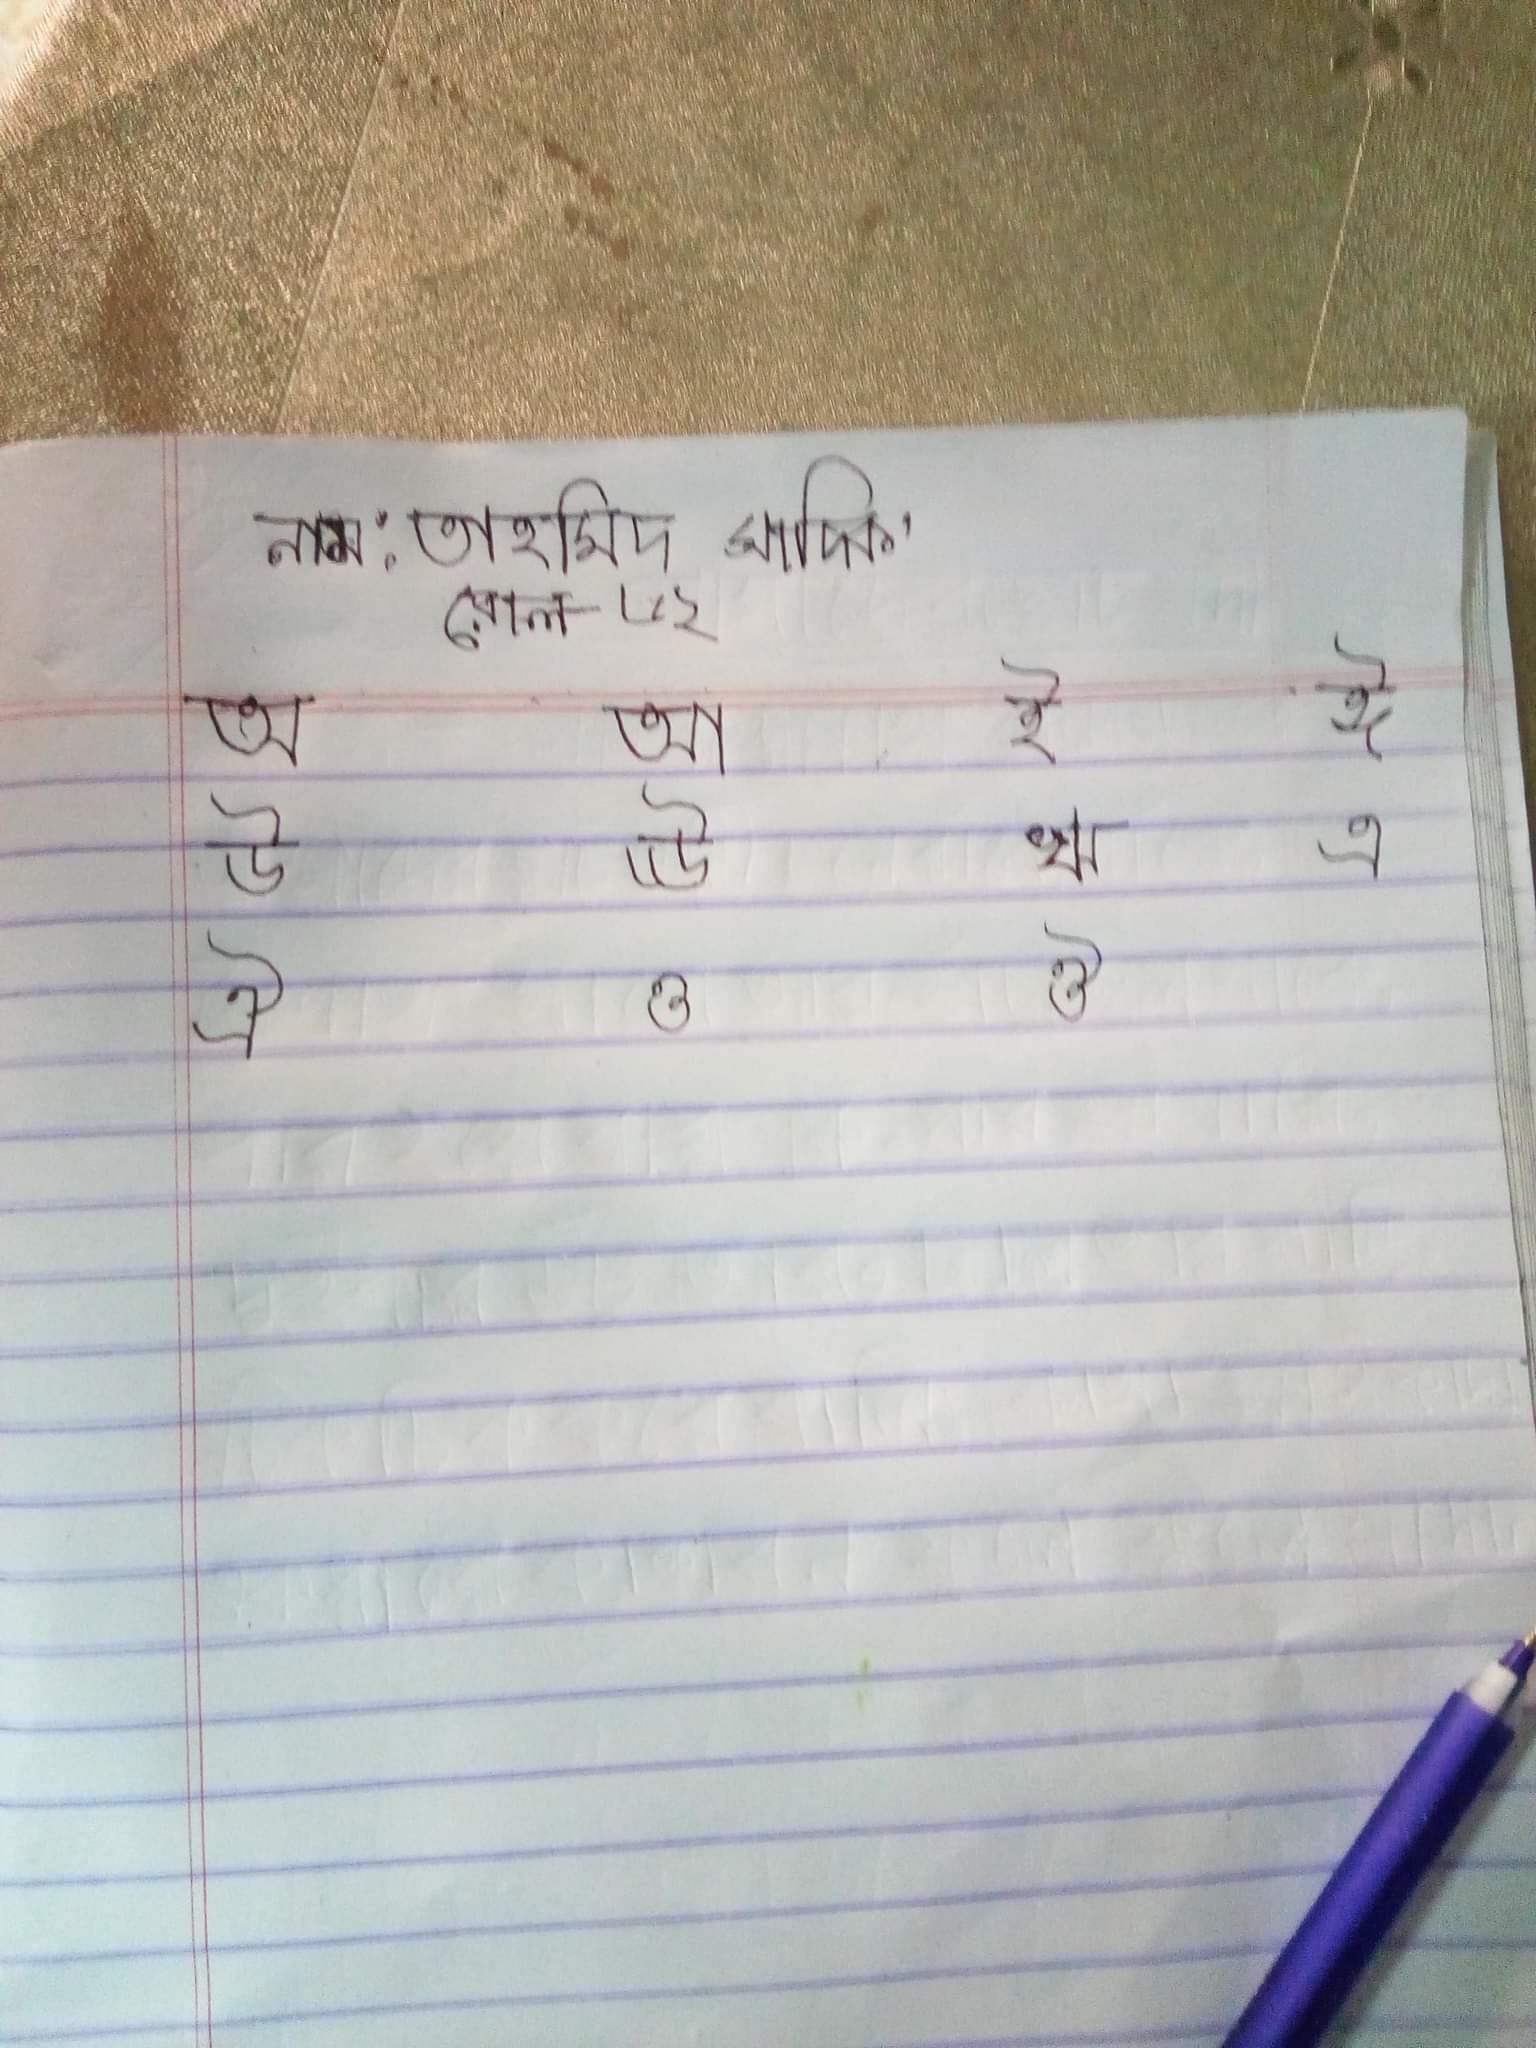 নাম: তাহমিদ সাদিক
রোল- ৮২
অ আ ই ঈ
উ ঊ ঋ এ
ঐ ও ঔ